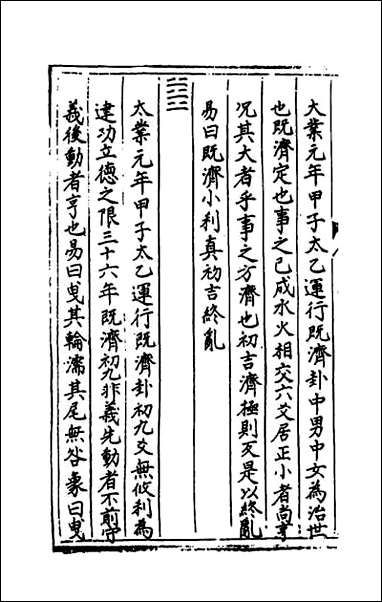 大業元年甲子太乙運行既濟卦中男中女為治世
也既濟定也事之已成水火相交六爻居正小者尚亨
况其大者乎事之方濟也初吉濟極則反是以終亂
易曰既濟小利真初吉終亂
太業元年甲子太乙運行既濟卦初九爻無攸利為
建功立德之限三十六年既濟初九非義先動者不前守
義後動者亨也易曰曳其輪濡其尾無咎象曰曳